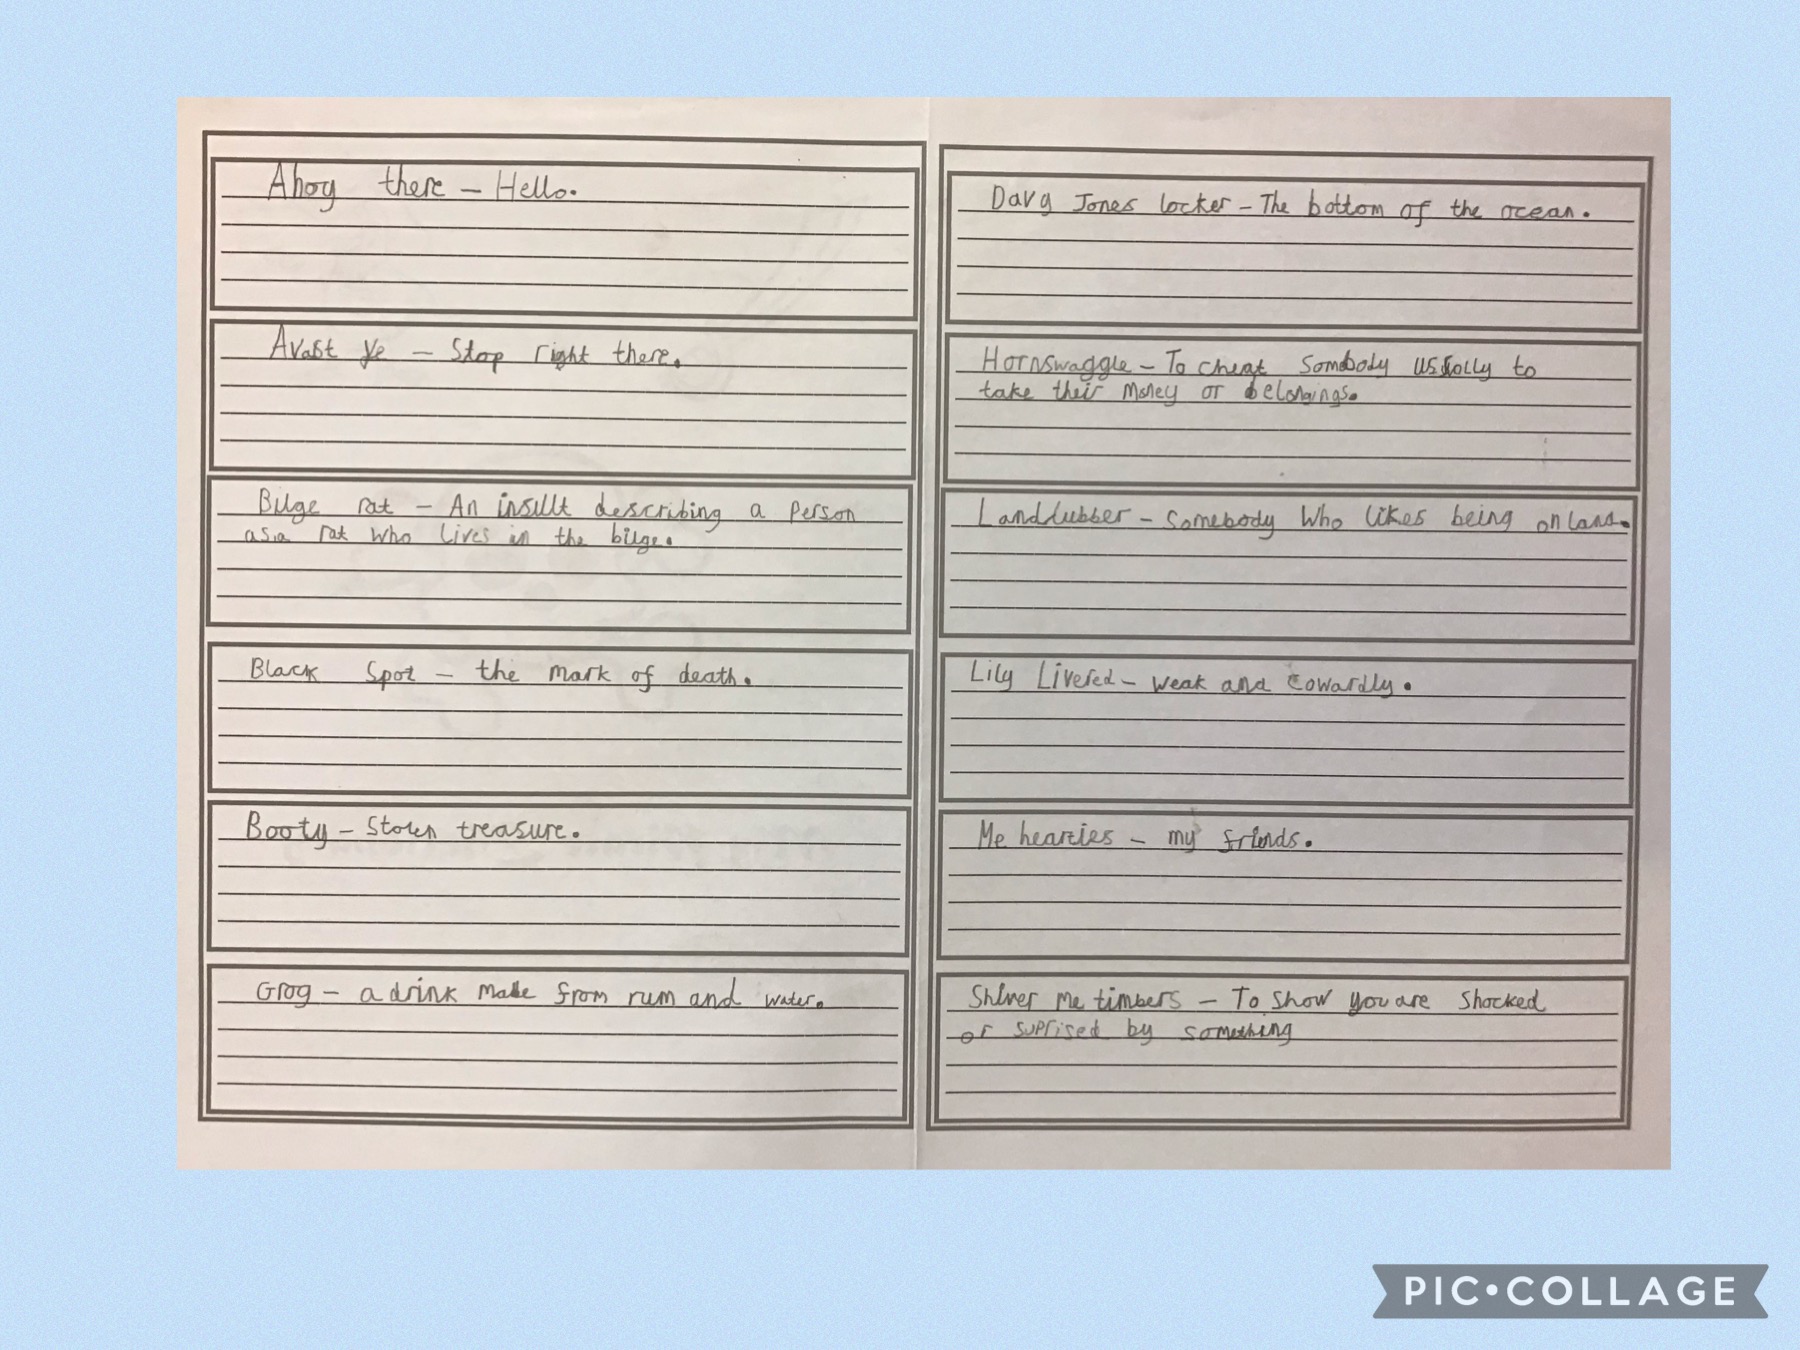 Ahoy there - Hello.
Avast ye - Stop right there.
Bilge rat - An insult describing a person
as a rat who lives in the bilge.
Black Spot - the mark of death.
Booty - Stolen treasure.
Grog - a drink made from rum and water.
Davy Jones locker - The bottom of the ocean.
Hornswaggle - To cheat Sombody usually to
take their money or belongings.
Landlubber - Somebody who likes being on land.
Lily Livered - weak and cowardly.
Me hearties - my friends.
Shiver me timbers - To show you are shocked
or suprised by something
PIC•COLLAGE